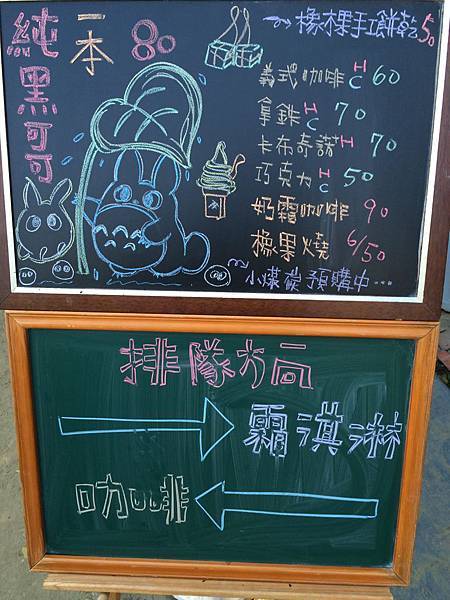 純黑可可
一本 80
橡果手工餅乾 50
義式咖啡 H C 60
拿鉄 H C 70
卡布奇諾 H 70
巧克力 H C 50
奶霜咖啡 90
橡果燒 6/50
小煤炭預購中....
排隊方向
霜淇淋
咖啡